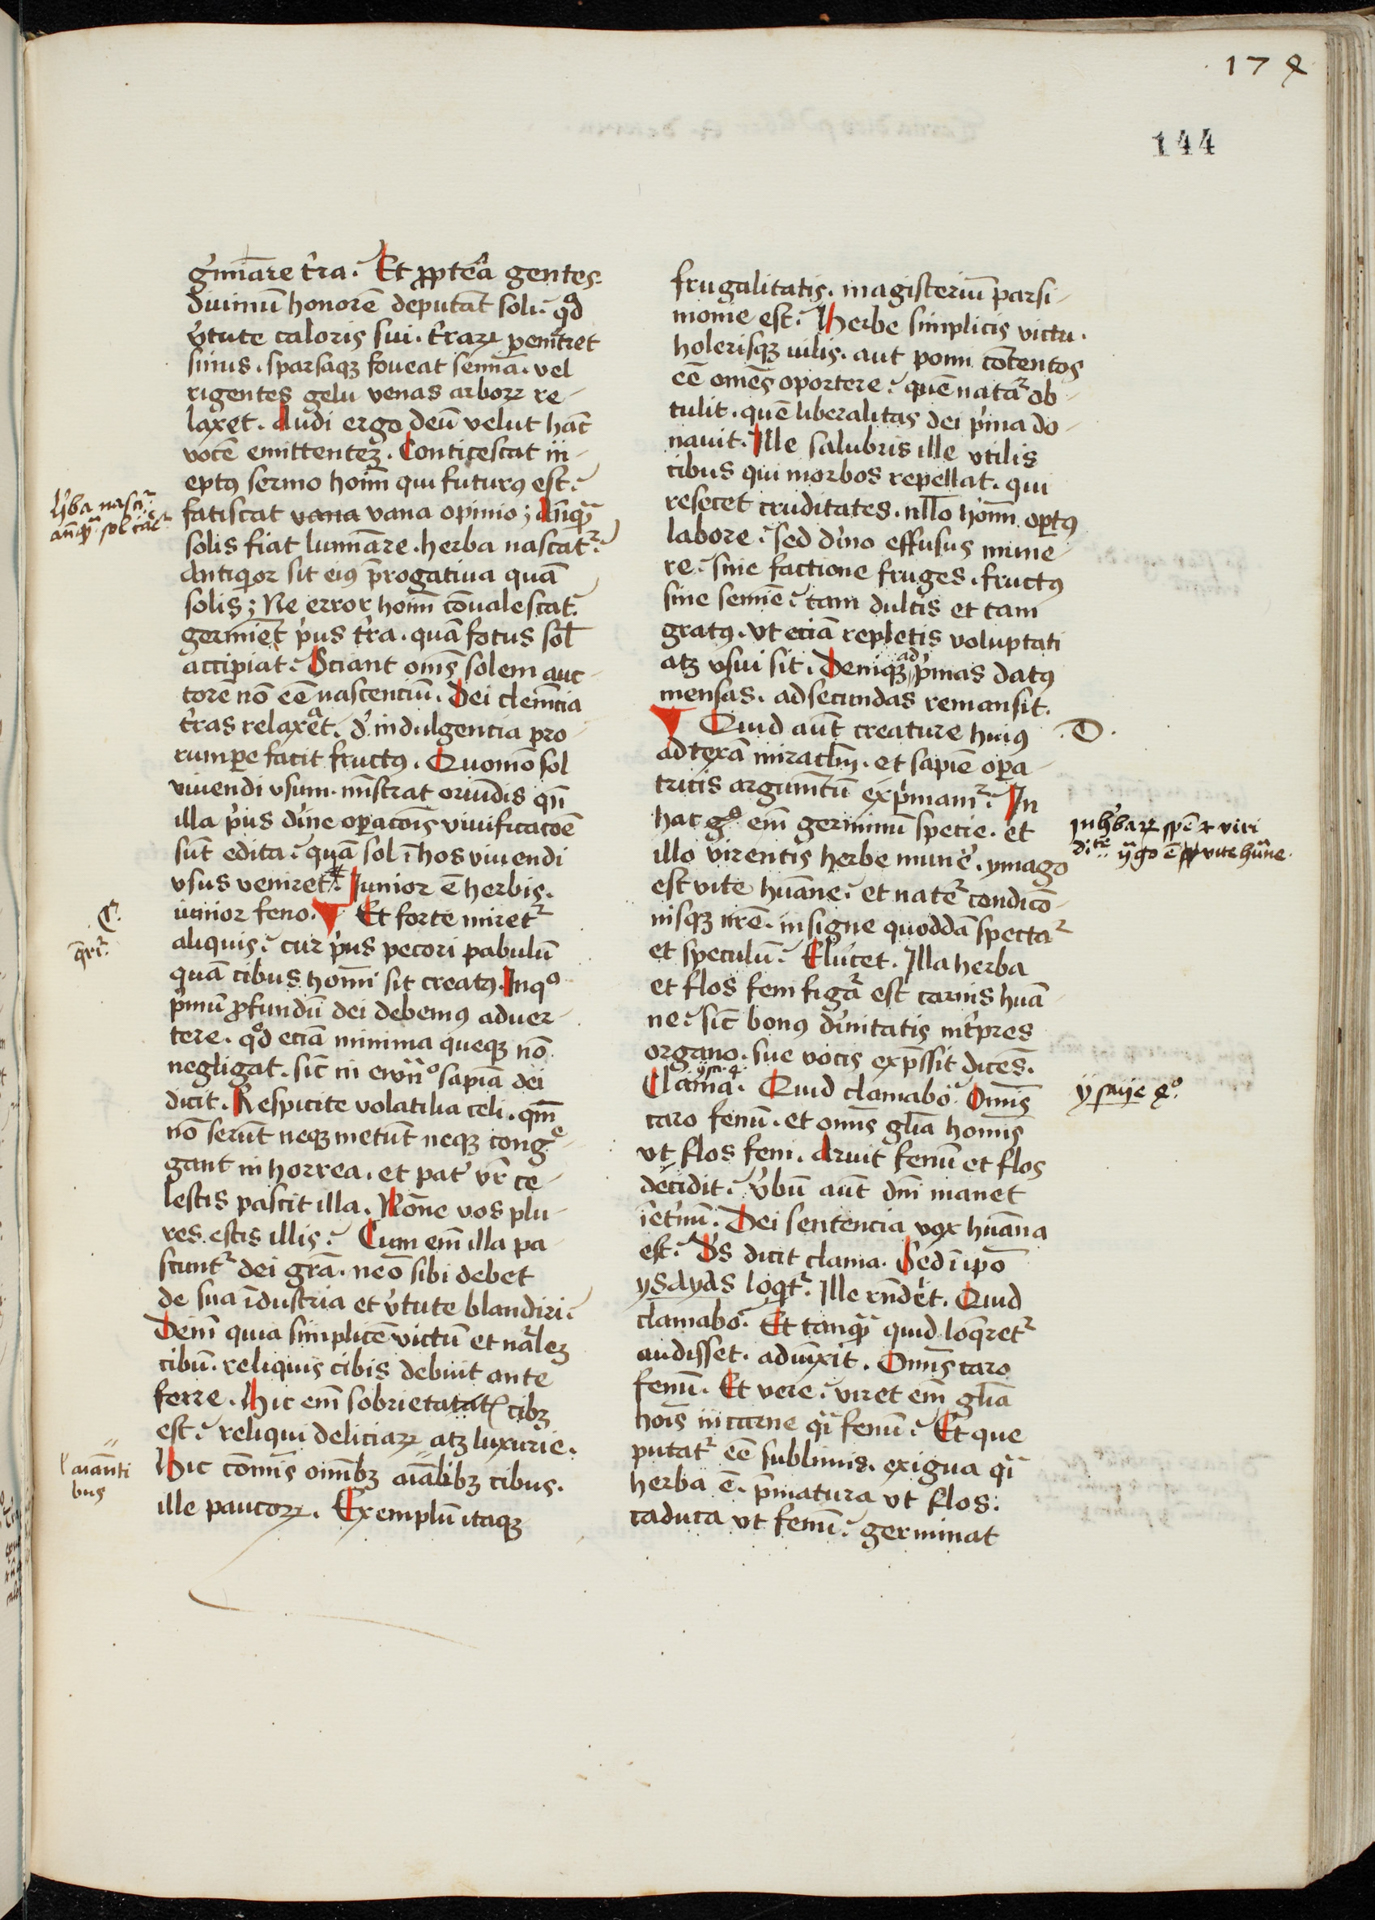 174
144
g̾mīare t̾ra. Et ꝓpteā gentes.
diuinū honorē deputāt soli. qđ
v̾tute caloris sui. t̾raꝝ penit̾ret
sinus. sparsaqꝫ foueat semīa. vel
rigentes gelu venas arboꝝ re-
laxet. Audi ergo deū velut hāc
vocē emittenteꝫ. Conticescat in-
eptꝰ sermo hoīm qui futurꝰ est.
fatiscat vana vana opinio; Anq̄ꝫ
solis fiat lumīare. herba nascatᷣ.
Antiqͥor sit eiꝰ p̄rogatiua quā
solis; Ne error hoīm cōualescat.
germiēt pͥus t̾ra. quā fotus sol̄
accipiat. Sciant om̄s solem auc-
torē nō eē nascenciū. Dei clemēcia
t̾ras relaxͣt. d̾. indulgencia pro-
rumpe̲ facit fructꝰ. Quomō sol
viuendi vsum. mīstrat oriūdis qn̄
illa pͥus diͥne op̲acōis viuificacōe
sūt edita. quā sol ī hos viuendi
vsus veniret. Iunior ē herbis.
iunior feno. Et forte miretᷣ
aliquis. cur pͥus pecori pabulū
quā cibus homī sit creatꝰ. Inqͦ
pͥmū ꝓfundū dei debemꝰ aduer-
tere. qđ eciā minima queqꝫ nō
negligat. sic̄ in ewn̄ͦ sapīa dei
dicit. Respicite volatilia celi. qm̄
nō serūt neqꝫ metūt neqꝫ congͤ-
gant in horrea. et pat̾ vr̄ ce-
lestis pascit illa. Nōne vos plu-
res estis illis. Cum em̄ illa pa-
scuntᷣ dei grā. nēo sibi debet
de sua īdustria et v̾tute blandiri.
Deinͫ quia simplicē victū et nāleꝫ
cibū. reliquis cibis debuit ante
ferre. Hic em̄ sobrietatat̾ cibꝰ
est. reliqui deliciaꝝ atqꝫ luxurie.
Hic cōmīs oīmbꝫ aīalibꝫ cibus.
ille paucoꝝ. Exemplū itaqꝫ
frugalitatis. magisteriū parsi-
monie est. Herbe simplicis victu.
holerisqꝫ uilis. aut pomi cōtentos
eē om̄es oportere. quē natāᷣ ob-
tulit. quē liberalitas dei pͥma do-
nauit. Ille salubris ille vtilis
cibus qui morbos repellat. qui
resecet cruditates. nllͦo hoīm optꝰ
labore. sed diͥno effusus mune-
re. sine factione fruges. fructꝰ
sine semīe. tam dulcis et tam
gratꝰ. vt eciā repletis voluptati
atqꝫ vsui sit. Deniqꝫ ad pͥmas datꝰ
mensas. ad secundas remansit.
Quid aūt creature huiꝰ
adtexā miraclm̄. et sapīe op̲a-
tricis argumētū expͥmamᷣ. In
hac gͦ em̄ germinū specie. et
illo virentis herbe munēͤ. ymago
est vite huāne. et natͤᷣ condicō-
nisqꝫ nr̄e. insigne quoddā spectaᷣ
et speculū. Elucet. Illa herba
et flos feni figāᷣ est carnis huā-
ne. sic̄ bonꝰ diͥnitatis int̾pres
organo. sue vocis exp̄ssit dicēs.
Clama. Quid clamabo. Om̄is
caro fenū. et om̄is gl̄ia homīs
vt flos feni. Aruit fenū et flos
decidit. v̾bū aūt dn̄i manet
īet̾nū. Dei sentencia vox huāna
est. Ds̄ dicit clama. Sed ī ipō
ysayas loqᷓtᷣ. Ille rn̄det. Quid
clamabo. Et tanqꝫ quid loq̄retᷣ
audisset. adiūxit. Om̄is caro
fenū. Et vere. viret em̄ gl̄ia
hoīs in carne qͣi fenū. Et que
putatᷣ eē sublimis. exigua qͣi
herba ē. p̄matura vt flos.
caduca vt fenū. germinat
h̾ba nascᷣ
ān̄qꝫ sol
C.
qͣrīᷣ.
aīanti
bus
D.
In h̾baꝝ spē et viri
ditͤ ẏgo ē vite hūne.
ysaije 4ͦ.